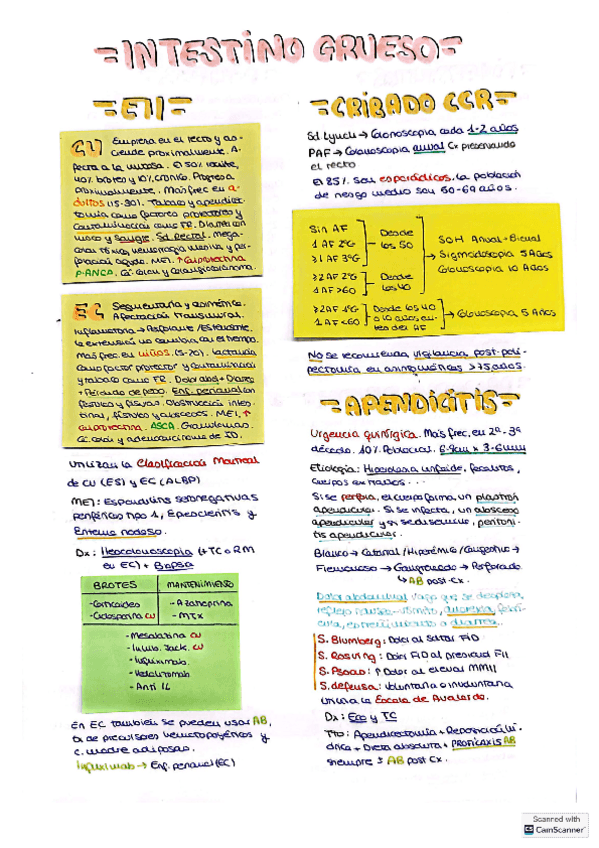 =INTESTINO GRUESO=
=EII=
CU Empieza en el recto y as-
ciende proximalmente. A-
fecta a la mucosa. El 50% leve,
40% brotes y 10% crónico. Progresa
proximalmente. Más frec en a-
dultos (15-30). Tabaco y apendicec-
tomía como factores protectores y
contaminación como FR. Diarrea con
moco y sangre. Sd. Rectal. Mega-
colon tóxico, hemorragia masiva y per-
foración aguda. MEI. ↑ Calprotectina
P-ANCA. CA. colon y colangiocarcinoma.
EC Segmentaria y asimétrica.
Afectación transmural.
Inflamatoria → Perforante / Estenosante.
La extensión no cambia con el tiempo.
Más frec. en niños (5-20). Lactancia
como factor protector y contaminación
y tabaco como FR. Dolor abd + Diarrea
+ Pérdida de peso. Enf. perianal con
fístulas y fisuras. Obstrucción intes-
tinal, fístulas y abscesos. MEI, ↑
calprotectina. ASCA. Granulomas.
CA. colon y adenocarcinoma de ID.
Utilizan la Clasificación Montreal
de CU (ES) y EC (ALBP)
MEI: Espondilitis seronegativas
periféricas tipo 1, Epiescleritis y
Eritema nodoso.
Dx: Ileocolonoscopia (+TC o RM
en EC) + Biopsia
BROTES MANTENIMIENTO
-Corticoides -Azatioprina
-Ciclosporina CU -MTX
-Mesalazina CU
-Inhib. Jack. CU
-Infliximab.
-Vedolizumab
-Anti IL
En EC también se pueden usar AB,
tx de precursores hematopoyéticos y
c. madre adiposas.
infliximab → Enf. perianal (EC)
=CRIBADO CCR=
Sd Lynch → Colonoscopia cada 1-2 años
PAF → Colonoscopia anual Cx preservando
el recto
El 85% son esporádicos. La población
de riesgo medio son 50-69 años.
Sin AF
1 AF 2ºG
≥1 AF 3ºG
Desde
los 50
≥2 AF 2ºG
1 AF >60
Desde
los 40
SOH Anual + Bianual
Sigmoidoscopia 5 Años
Colonoscopia 10 Años
≥2 AF 1ºG
1 AF <60
Desde los 40
o 10 años an-
tes del AF
→ Colonoscopia 5 Años
No se recomienda vigilancia post-poli-
pectomía en asintomáticos >75 años.
=APENDICITIS=
Urgencia quirúrgica. Más frec. en 2ª-3ª
década. 10% Población. 6-9cm x 3-6mm
Etiología: Hiperplasia linfoide, fecalitos,
cuerpos extraños...
Si se perfora, el cuerpo forma un plastrón
apendicular. Si se infecta, un absceso
apendicular y si se disemine, peritoni-
tis apendicular.
Blanco → Catarral / Hiperémica / Congestiva →
Flemonosa → Gangrenada → Perforada
↳ AB post Cx.
Dolor abdominal vago que se desplaza,
reflejo náusea-vómito, anorexia, febrí-
cula, estreñimiento o diarrea...
S. Blumberg: Dolor al soltar FID
S. Rovsing: Dolor FID al presionar FII
S. Psoas: ↑ Dolor al elevar MMII
S. defensa: voluntaria o involuntaria
Utiliza la Escala de Alvarado.
Dx: Eco y TC
Tto: Apendicectomía + Reposición hí-
drica + Dieta absoluta + Profilaxis AB
siempre ± AB post Cx.
Scanned with
CamScanner